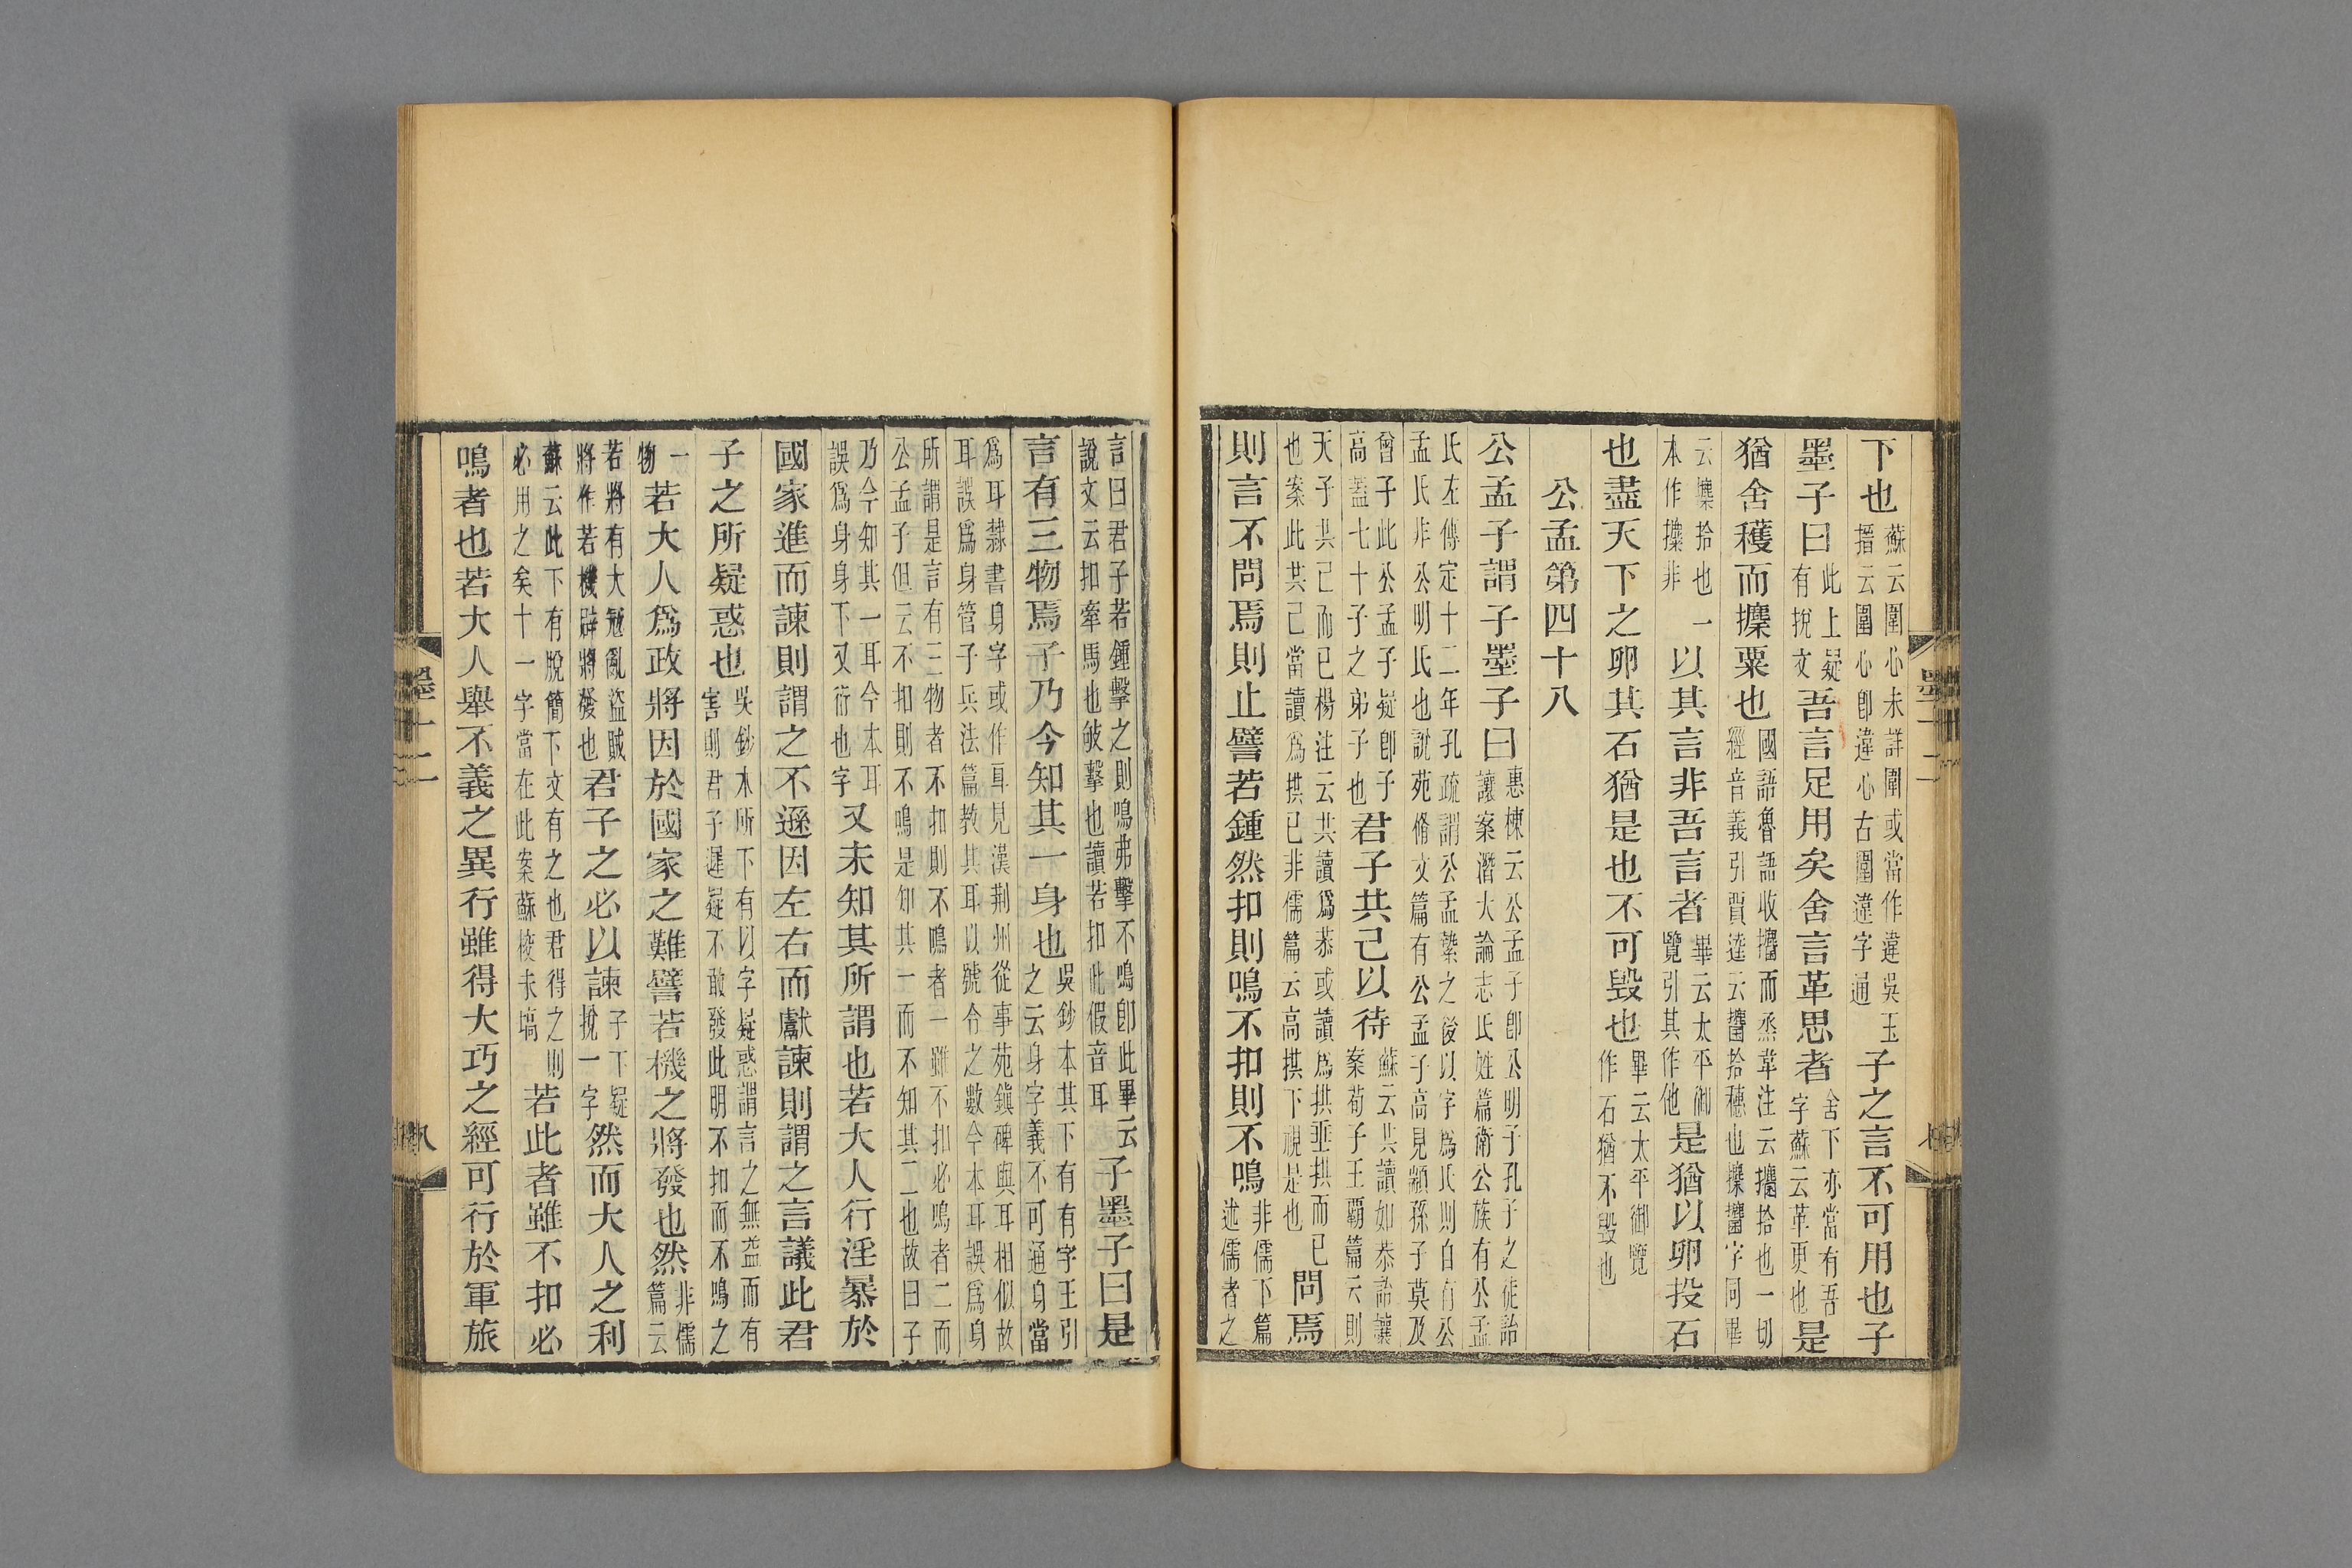 下也蘇云圍心未詳圍或當作違吳玉搢云圍心卽違心古圍違字通子之言不可用也子
墨子曰此上疑有挩文吾言足用矣舍言革思者舍下亦當有吾字蘇云革更也是
猶舍穫而攈粟也國語魯語收攟而烝韋注云攟拾也一切經音義引賈逵云攟拾穗也攈攟字同畢
云攈拾也一本作攗非以其言非吾言者畢云太平御覽引其作他是猶以卵投石
也盡天下之卵其石猶是也不可毀也畢云太平御覽作石猶不毀也
公孟第四十八
公孟子謂子墨子曰惠棟云公孟子卽公明子孔子之徒詒讓案潛夫論志氏姓篇衞公族有公孟
氏左傳定十二年孔疏謂公孟縶之後以字爲氏則自有公孟氏非公明氏也說苑脩文篇有公孟子高見顓孫子莫及
曾子此公孟子疑卽子高蓋七十子之弟子也君子共己以待蘇云共讀如恭詒讓案荀子王霸篇云則
天子共己而已楊注云共讀爲恭或讀爲拱垂拱而已也案此共己當讀爲拱已非儒篇云高拱下視是也問焉
則言不問焉則止譬若鍾然扣則鳴不扣則不鳴非儒下篇述儒者之
言曰君子若鍾擊之則鳴弗擊不鳴卽此畢云說文云扣牽馬也敂擊也讀若扣此假音耳子墨子曰是
言有三物焉子乃今知其一身也吳鈔本其下有有字王引之云身字義不可通身當
爲耳隸書身字或作耳見漢荆州從事苑鎭碑與耳相似故耳誤爲身管子兵法篇敎其耳以號令之數今本耳誤爲身
所謂是言有三物者不扣則不鳴者一雖不扣必鳴者二而公孟子但云不扣則不鳴是知其一而不知其二也故曰子
乃今知其一耳今本耳誤爲身身下又衍也字又未知其所謂也若大人行淫暴於
國家進而諫則謂之不遜因左右而獻諫則謂之言議此君
子之所疑惑也吳鈔本所下有以字疑惑謂言之無益而有害則君子遲疑不敢發此明不扣而不鳴之
一物若大人爲政將因於國家之難譬若機之將發也然非儒篇云
若將有大寇亂盜賊將作若機辟將發也君子之必以諫子下疑挩一字然而大人之利
蘇云此下有脫簡下文有之也君得之則必用之矣十一字當在此案蘇校未塙若此者雖不扣必
鳴者也若大人舉不義之異行雖得大巧之經可行於軍旅
墨十二
墨十二
八